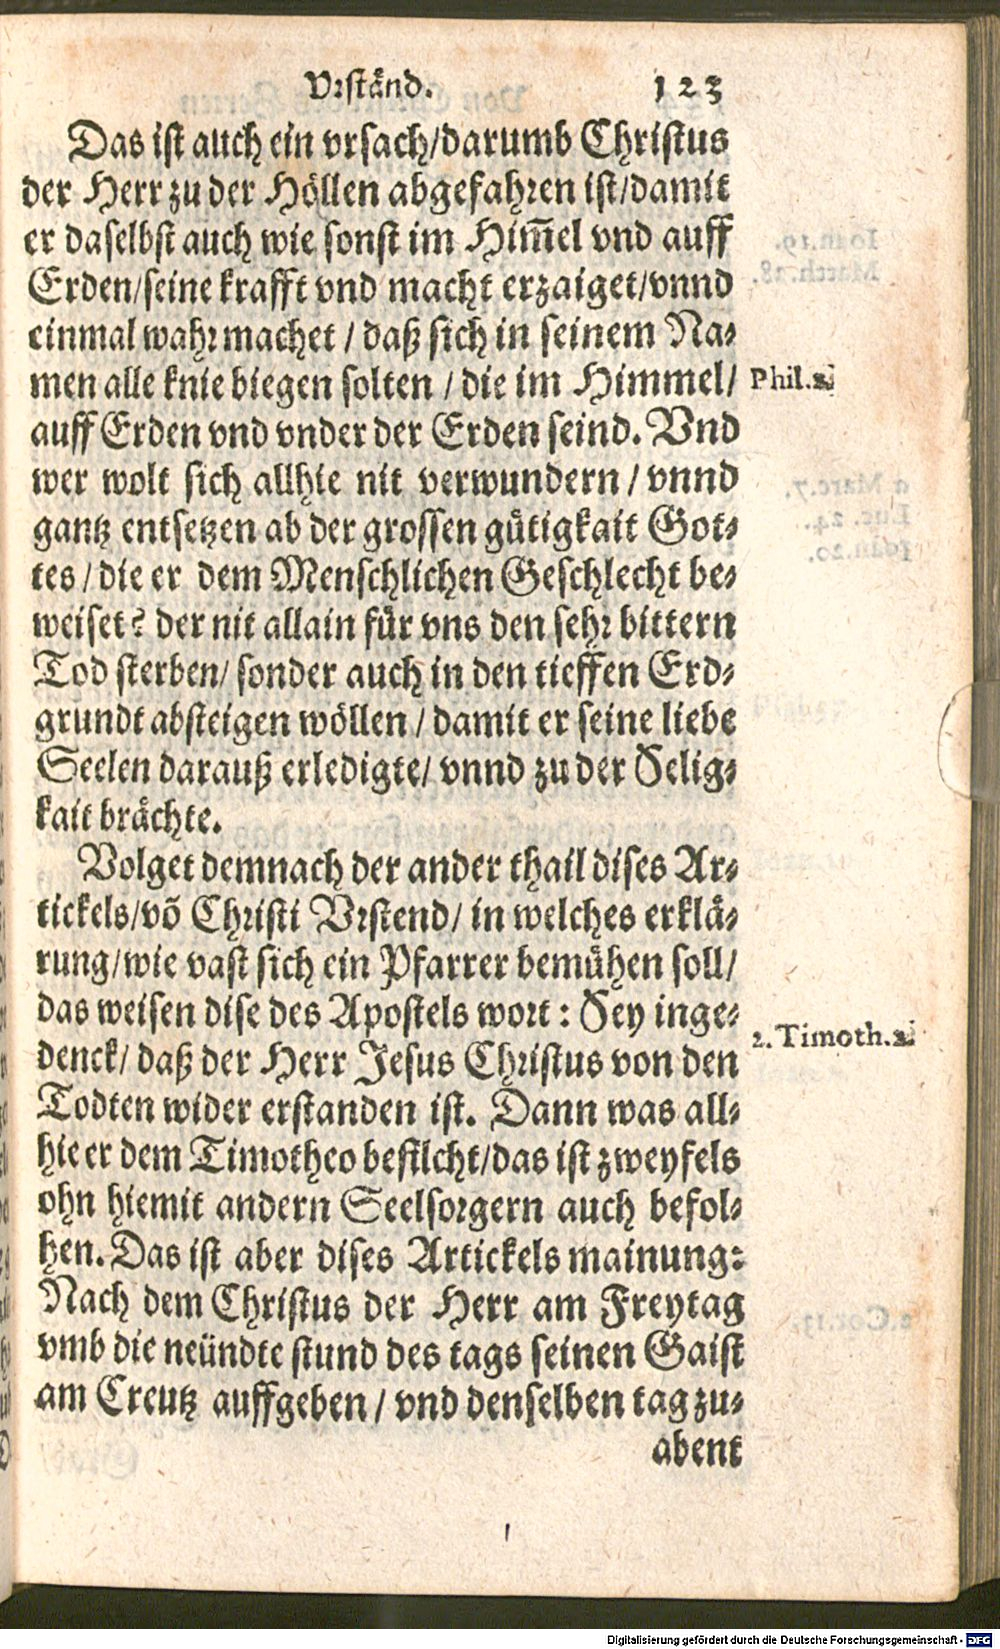 Vrständ. 123
Das ist auch ein vrsach/darumb Christus
der Herr zu der Höllen abgefahren ist/damit
er daselbst auch wie sonst im Him̃el vnd auff
Erden/seine krafft vnd macht erzaiget/vnnd
einmal wahr machet / daß sich in seinem Na-
men alle knie biegen solten / die im Himmel/ Phil.2.
auff Erden vnd vnder der Erden seind. Vnd
wer wolt sich allhie nit verwundern / vnnd
gantz entsetzen ab der grossen gütigkait Got-
tes / die er dem Menschlichen Geschlecht be-
weiset? der nit allain für vns den sehr bittern
Tod sterben/ sonder auch in den tieffen Erd-
grundt absteigen wöllen / damit er seine liebe
Seelen darauß erledigte/ vnnd zu der Selig-
kait brächte.
Volget demnach der ander thail dises Ar-
tickels/võ Christi Vrstend/ in welches erklä-
rung/wie vast sich ein Pfarrer bemühen soll/
das weisen dise des Apostels wort : Sey inge- 2. Timoth.2.
denck/ daß der Herr Jesus Christus von den
Todten wider erstanden ist. Dann was all-
hie er dem Timotheo befilcht/das ist zweyfels
ohn hiemit andern Seelsorgern auch befol-
hen. Das ist aber dises Artickels mainung:
Nach dem Christus der Herr am Freytag
vmb die neündte stund des tags seinen Gaist
am Creutz auffgeben / vnd denselben tag zu-
abent
Digitalisierung gefördert durch die Deutsche Forschungsgemeinschaft - DFG